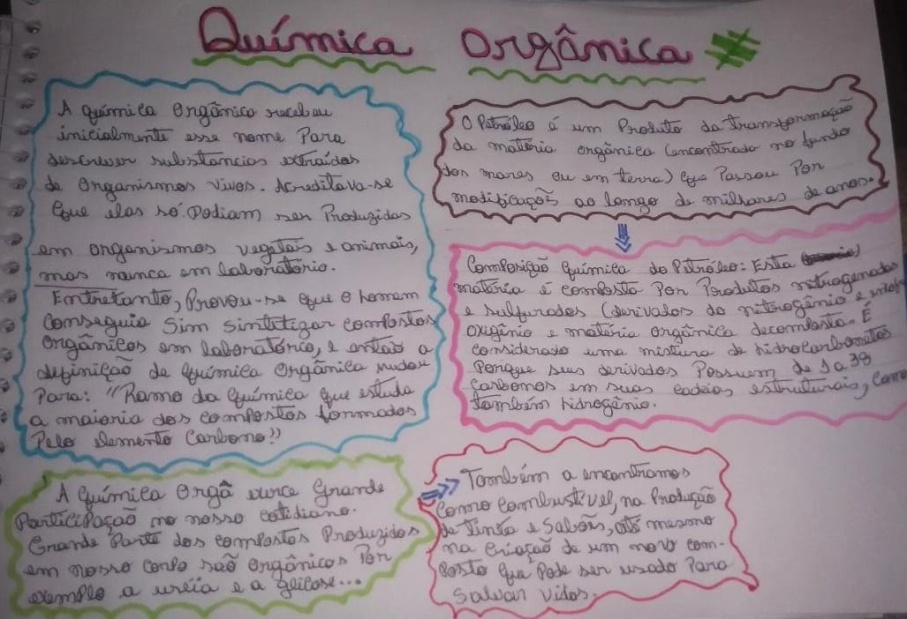 Química Orgânica
A química Orgânica recebeu
inicialmente esse nome Para
descrever substancias extraídas
de Organismos vivos. Acreditava-se
que elas só Podiam ser Produzidas
em organismos vegetais e animais,
mas nunca em laboratório.
Entretanto, Provou-se que o homem
conseguia Sim Sintetizar compostos
Orgânicos em laboratório, e então a
definição de Química Orgânica mudou
Para: "Ramo da Química que estuda
a maioria dos compostos formados
Pelo elemento Carbono!"
A Química Orgâ exerce Grande
Participação no nosso cotidiano.
Grande Parte dos compostos Produzidos
em nosso corpo são orgânicos Por
exemplo a uréia e a glicose...
O Petróleo é um Produto da transformação
da matéria orgânica (encontrada no fundo
dos mares ou em terra) que Passou Por
modificações ao longo de milhares de anos.
Composição Química do Petróleo: Esta
matéria é composta Por Produtos nitrogenados
e sulfurados (derivados do nitrogênio e
oxigênio e matéria orgânica decomposta. É
considerado uma mistura de hidrocarbonetos
Porque seus derivados Possuem de 1 a 38
carbonos em suas cadeias estruturais, como
também hidrogênio.
Também a encontramos
como combustível, na Produção
de tinta e Sabões, até mesmo
na criação de um novo com-
posto que Pode ser usado Para
Salvar vidas.